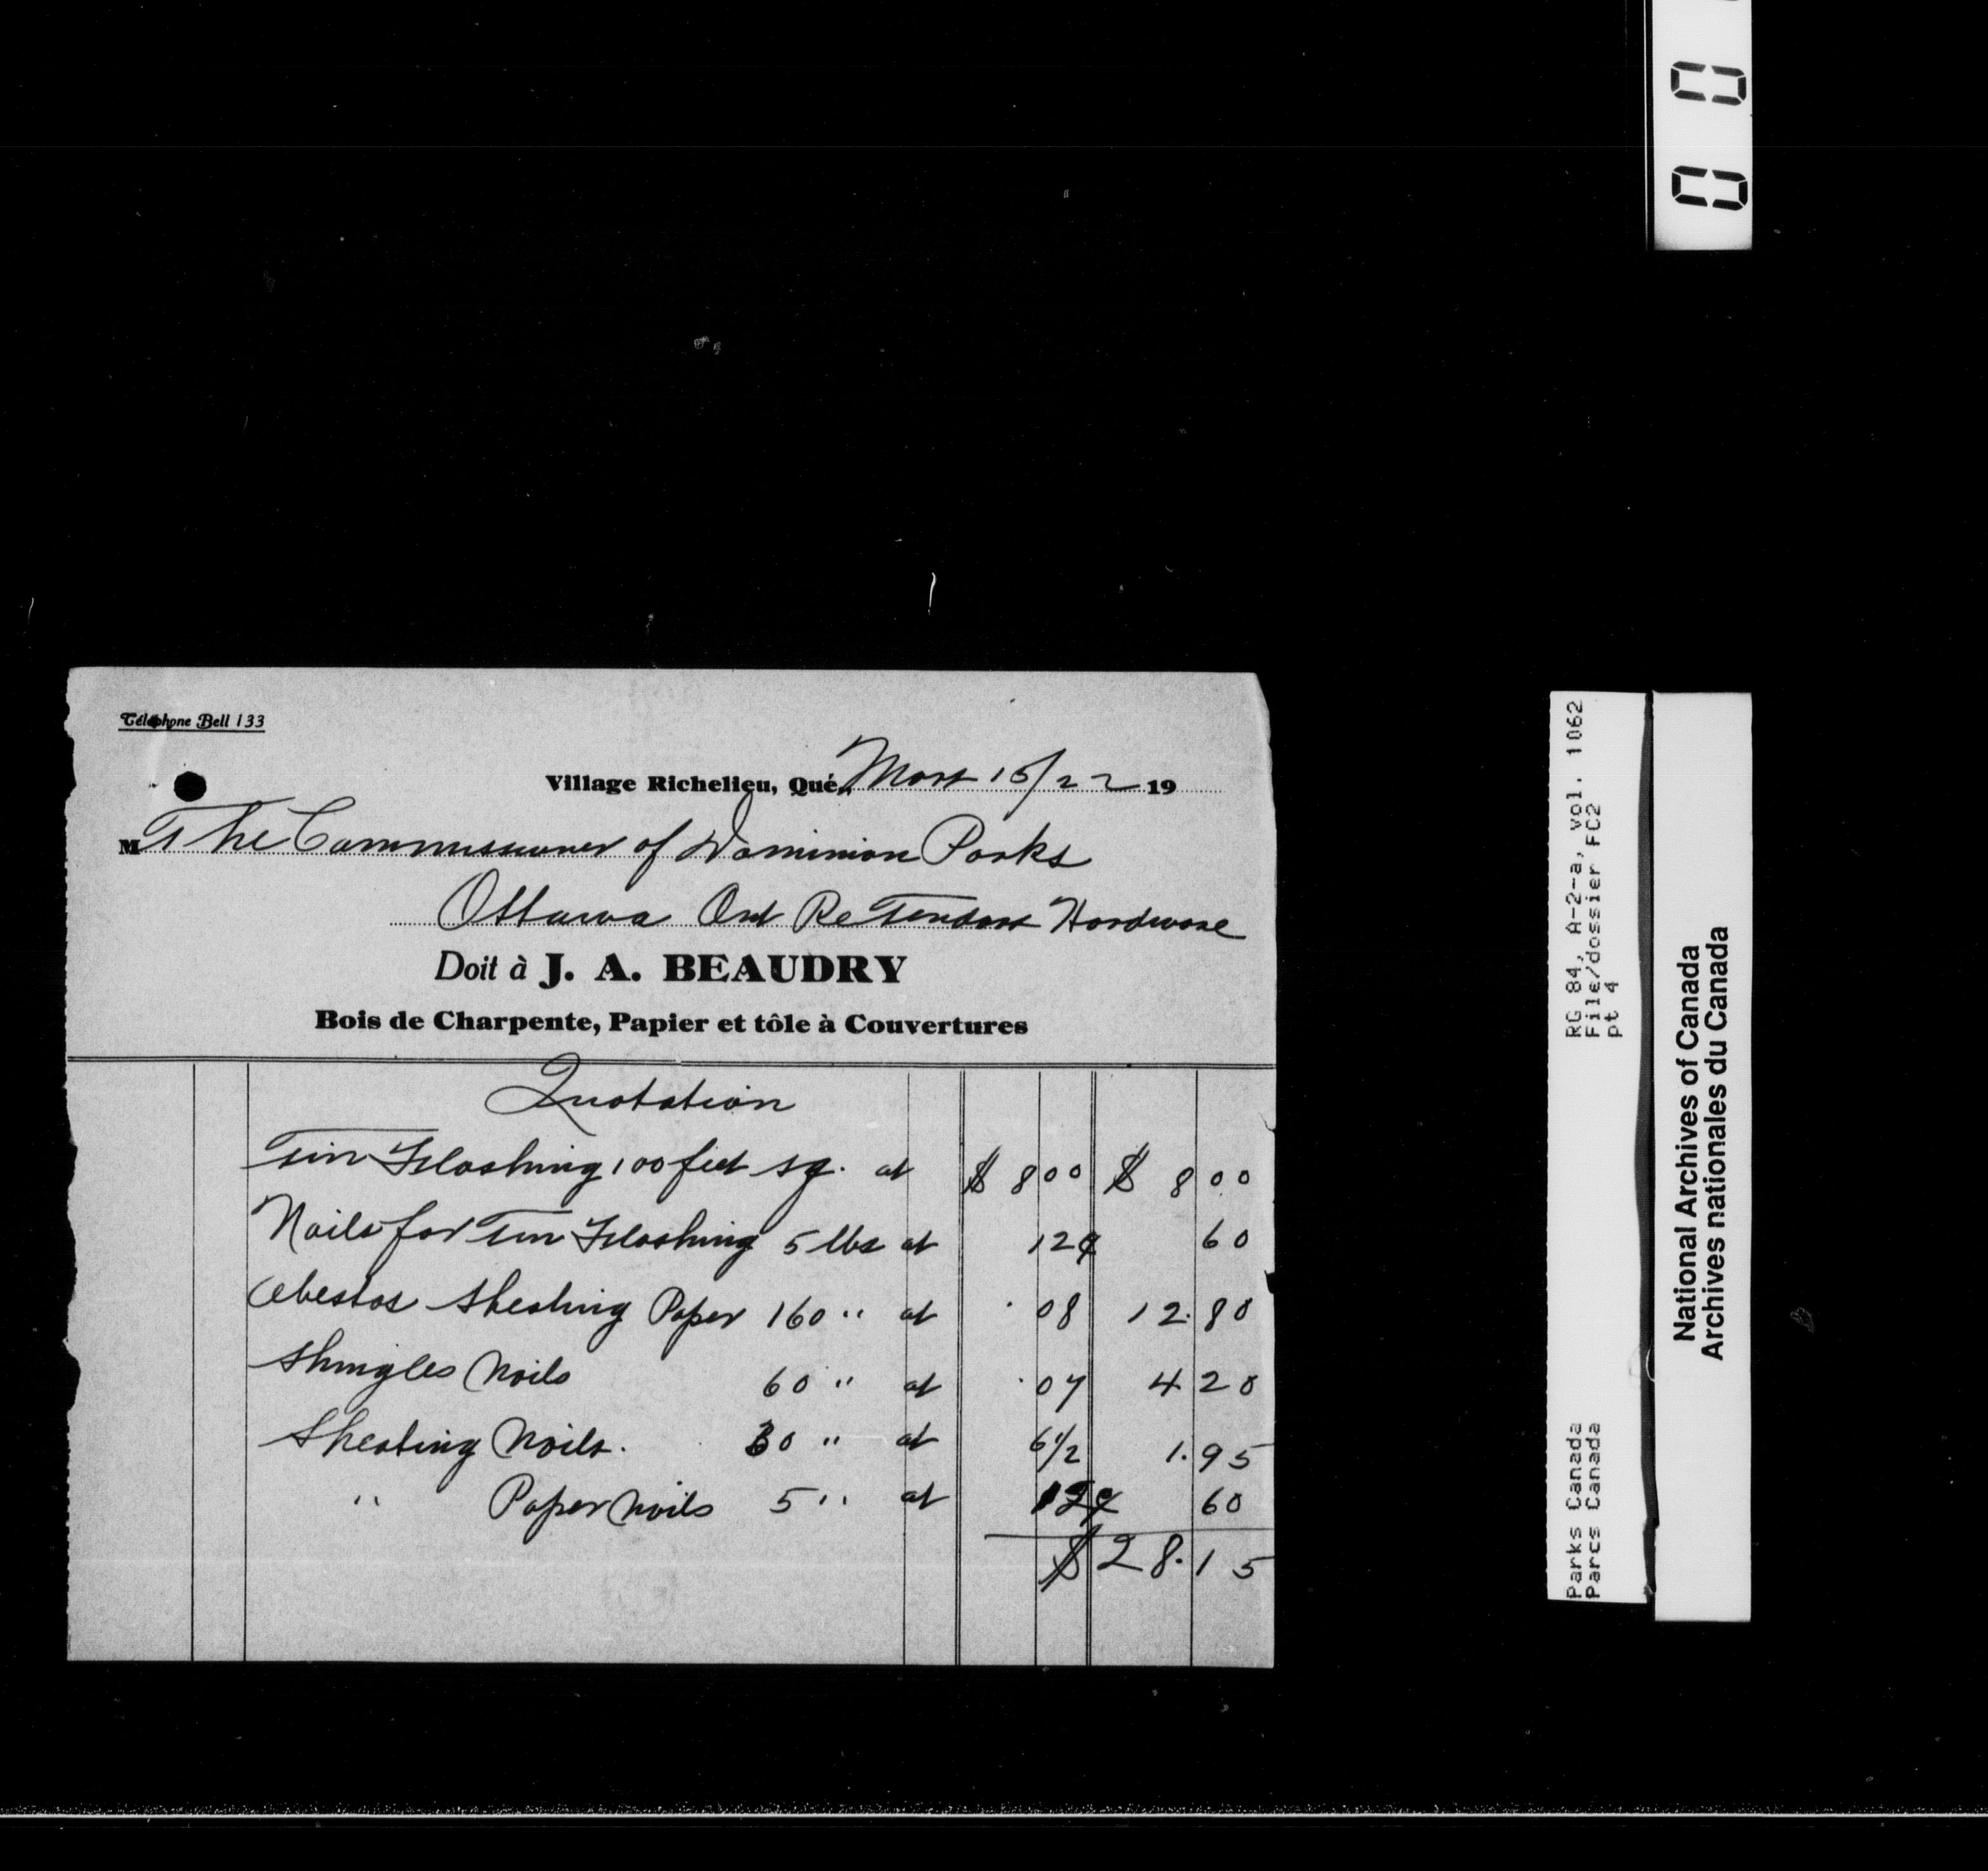 Téléphone Bell 133
Village Richelieu, Qué., Mars 15/22 19
M The Commissioner of Dominion Parks
Ottawa Ont Re Tenders Hardware
Doit à J. A. BEAUDRY
Bois de Charpente, Papier et tôle à Couvertures
Quotation
Tin Flashing 100 feet sq. at $ 8 00 $ 8 00
Nails for Tin Flashing 5 lbs at 12¢ 60
Abestos Sheating Paper 160 " at .08 12.80
Shingles Nails 60 " at .07 4 20
Sheating Nails. 30 " at 6 1/2 1.95
" Paper Nails 5 " at 12¢ 60
$ 28.15
0 0
RG 84, A-2-a, vol. 1062
File/dossier FC2
pt 4
Parks Canada
Parcs Canada
National Archives of Canada
Archives nationales du Canada